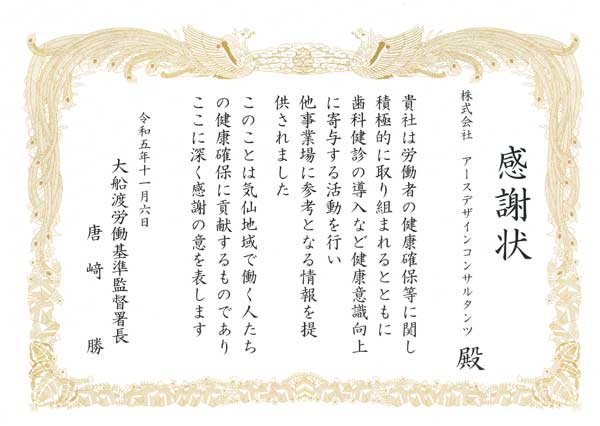 感謝状
株式会社 アースデザインコンサルタンツ 殿
貴社は労働者の健康確保等に関し
積極的に取り組まれるとともに
歯科健診の導入など健康意識向上
に寄与する活動を行い
他事業場に参考となる情報を提
供されました
このことは気仙地域で働く人たち
の健康確保に貢献するものであり
ここに深く感謝の意を表します
令和五年十一月六日
大船渡労働基準監督署長
唐﨑 勝